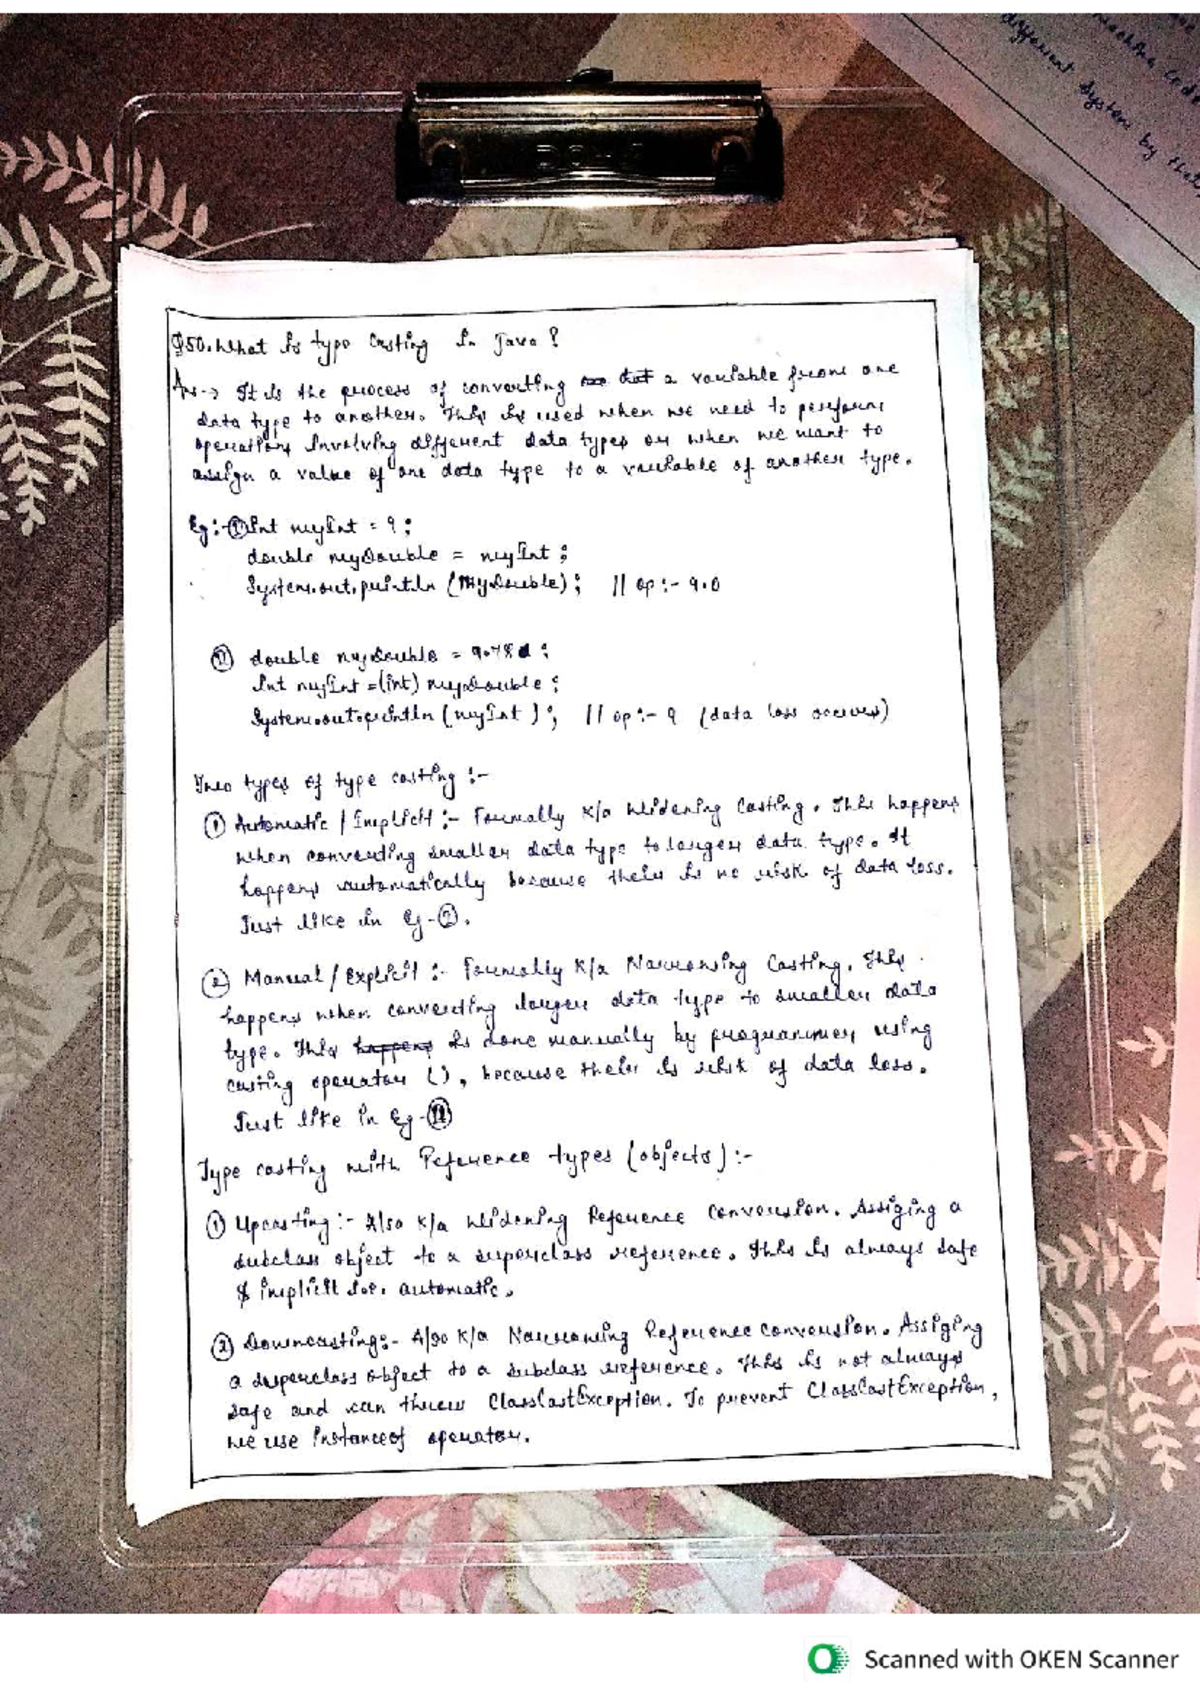 Q50. What is type casting in Java?
Ans → It is the process of converting a variable from one
data type to another. This is used when we need to perform
operations involving different data types or when we want to
assign a value of one data type to a variable of another type.
Eg:- ① Int myInt = 9;
double myDouble = myInt;
System.out.println (MyDouble); // op:- 9.0
⑪ double myDouble = 9.78;
Int myInt =(int) myDouble;
System.out.println (myInt); // op:- 9 (data loss occurs)
Two types of type casting :-
① Automatic / Implicit :- Formally K/a Widening Casting. This happens
when converting smaller data type to larger data type. It
happens automatically because their is no risk of data loss.
Just like in Eg-②.
② Manual / Explicit :- Formally K/a Narrowing Casting. This
happens when converting larger data type to smaller data
type. This happens is done manually by programmer using
casting operator (), because their is risk of data loss.
Just like in Eg-⑪
Type casting with Reference types (objects):-
① Upcasting:- Also K/a Widening Reference Conversion. Assiging a
subclass object to a superclass reference. This is always safe
& implicit i.e. automatic.
② Downcasting:- Also K/a Narrowing Reference conversion. Assiging
a superclass object to a subclass reference. This is not always
safe and can throw ClassCastException. To prevent ClassCastException,
we use Instanceof operator.
machine code
different system by that
Scanned with OKEN Scanner